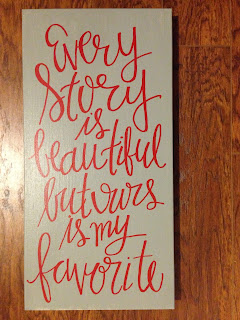 Every
Story
is
beautiful
but ours
is my
favorite